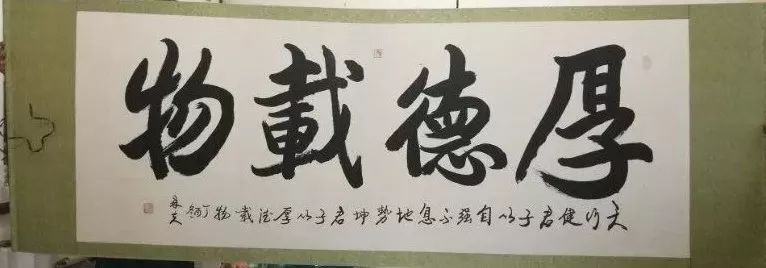 厚德載物
天行健君子以自强不息地勢坤君子以厚德載物丁酉